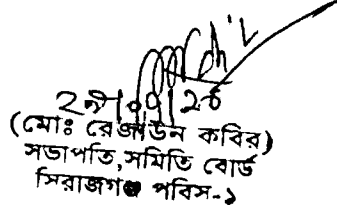 (মোঃ রেজাউন কবির)
সভাপতি,সমিতি বোর্ড
সিরাজগঞ্জ পবিস-১